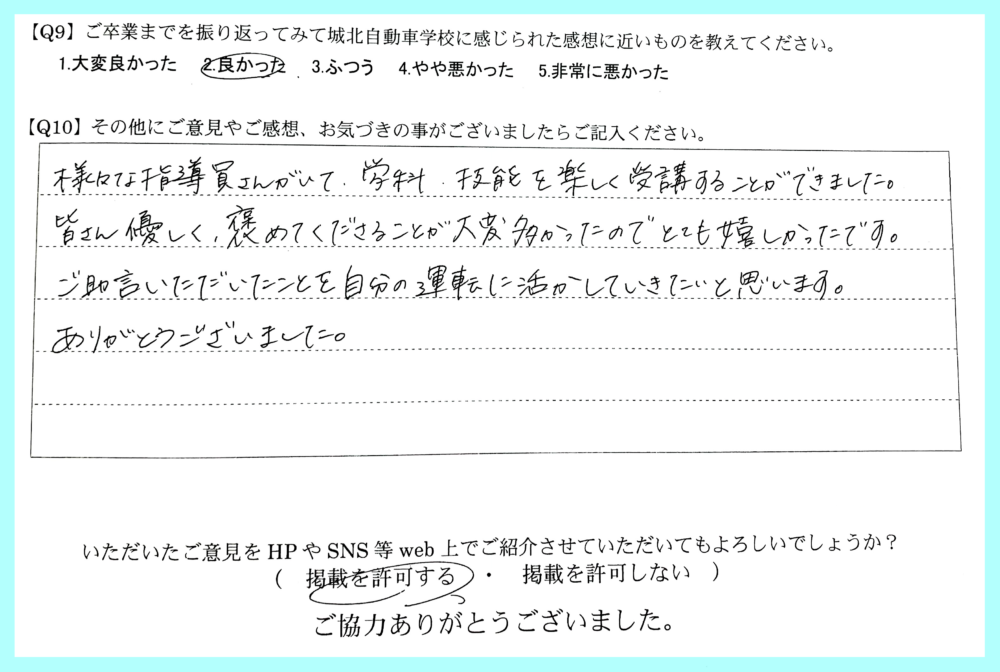 【Q9】ご卒業までを振り返ってみて城北自動車学校に感じられた感想に近いものを教えてください。
1.大変良かった 2.良かった 3.ふつう 4.やや悪かった 5.非常に悪かった
【Q10】その他にご意見やご感想、お気づきの事がございましたらご記入ください。
様々な指導員さんがいて、学科、技能を楽しく受講することができました。
皆さん優しく、褒めてくださることが大変多かったのでとても嬉しかったです。
ご助言いただいたことを自分の運転に活かしていきたいと思います。
ありがとうございました。
いただいたご意見をHPやSNS等web上でご紹介させていただいてもよろしいでしょうか？
（ 掲載を許可する ・ 掲載を許可しない ）
ご協力ありがとうございました。